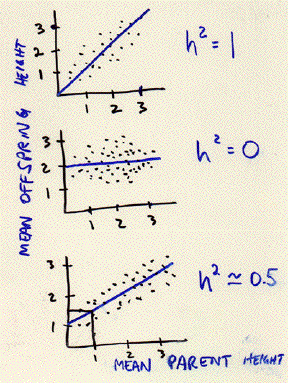 MEAN OFFSPRING HEIGHT
3
2
1
1 2 3
h² = 1
3
2
1
1 2 3
h² = 0
3
2
1
1 2 3
h² ≃ 0.5
MEAN PARENT HEIGHT